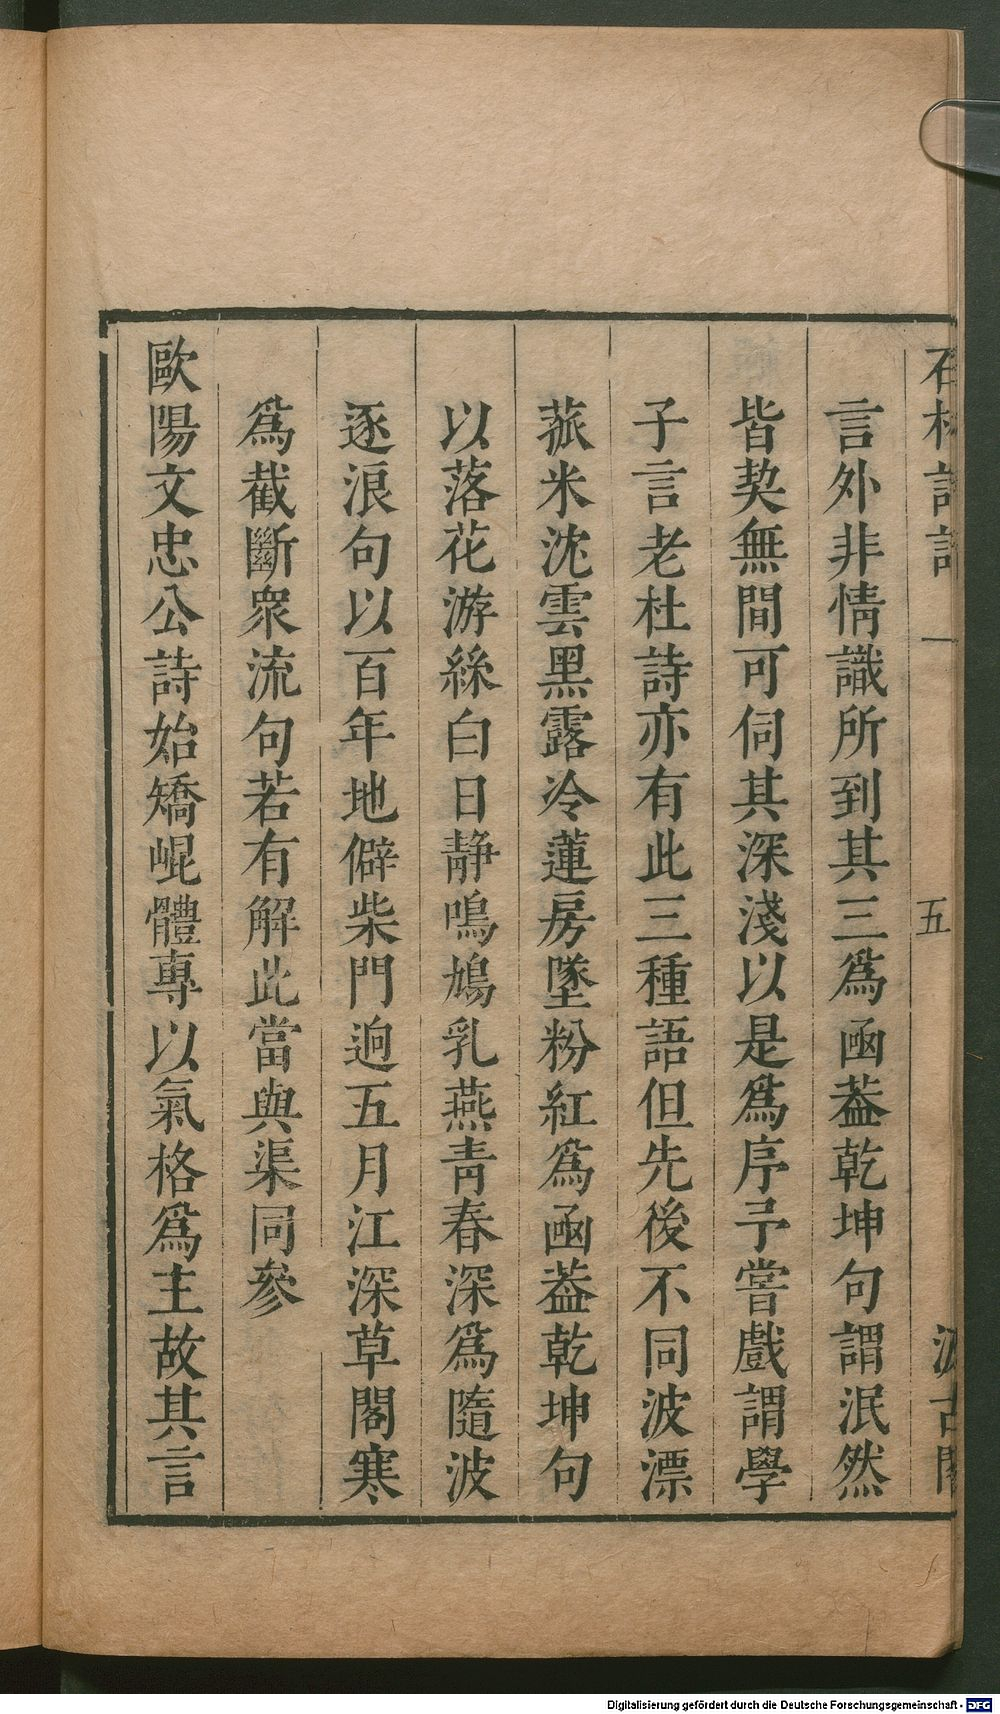 石林詩話 一 五 汲古閣
言外非情識所到其三為函蓋乾坤句謂泯然
皆契無間可伺其深淺以是為序予嘗戲謂學
子言老杜詩亦有此三種語但先後不同波漂
菰米沈雲黑露冷蓮房墜粉紅為函蓋乾坤句
以落花游絲白日靜鳴鳩乳燕青春深為隨波
逐浪句以百年地僻柴門迥五月江深草閣寒
為截斷衆流句若有解此當與渠同參
歐陽文忠公詩始矯崐體專以氣格為主故其言
Digitalisierung gefördert durch die Deutsche Forschungsgemeinschaft - DFG